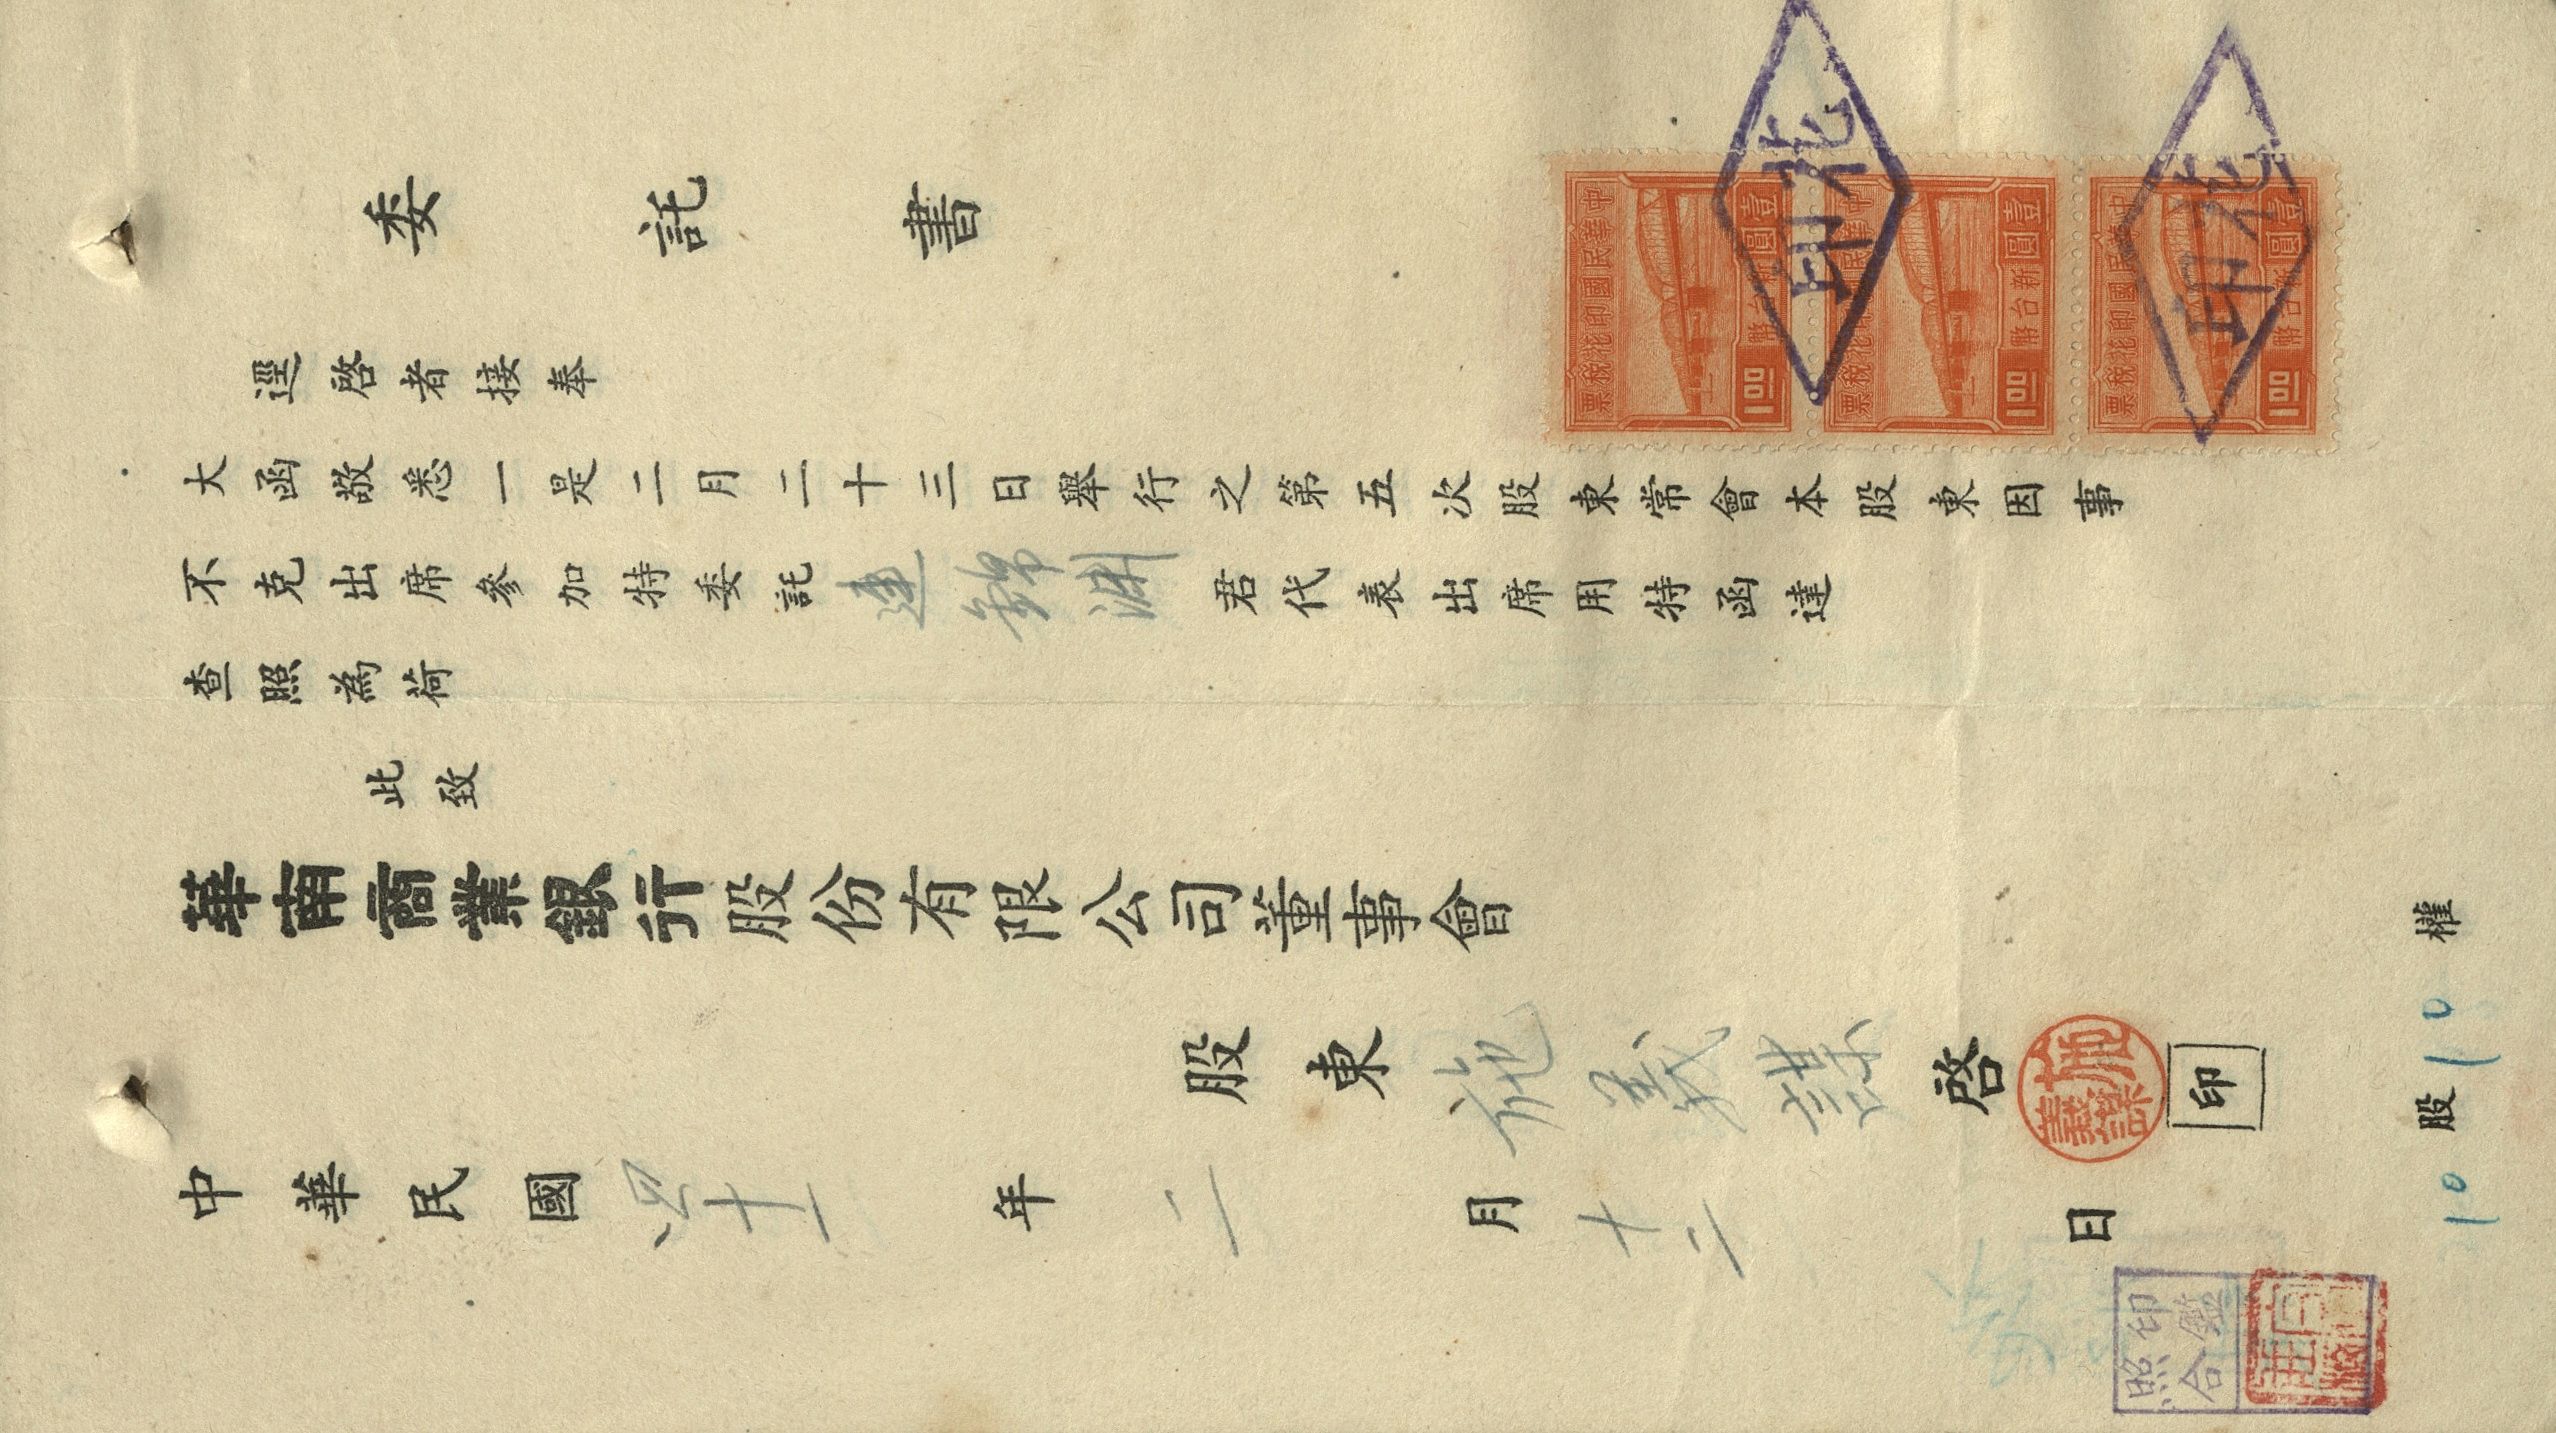 委託書
逕啓者接奉
大函敬悉一是二月二十三日舉行之第五次股東常會本股東因事
不克出席參加特委託連錦淵君代表出席用特函達
查照為荷
此致
華南商業銀行股份有限公司董事會
股東施義謀啓
印
中華民國四十一年二月十二日
10股10權
中華民國印花稅票
壹圓
新台幣
1.00
中華民國印花稅票
壹圓
新台幣
1.00
中華民國印花稅票
壹圓
新台幣
1.00
印鑑
照合